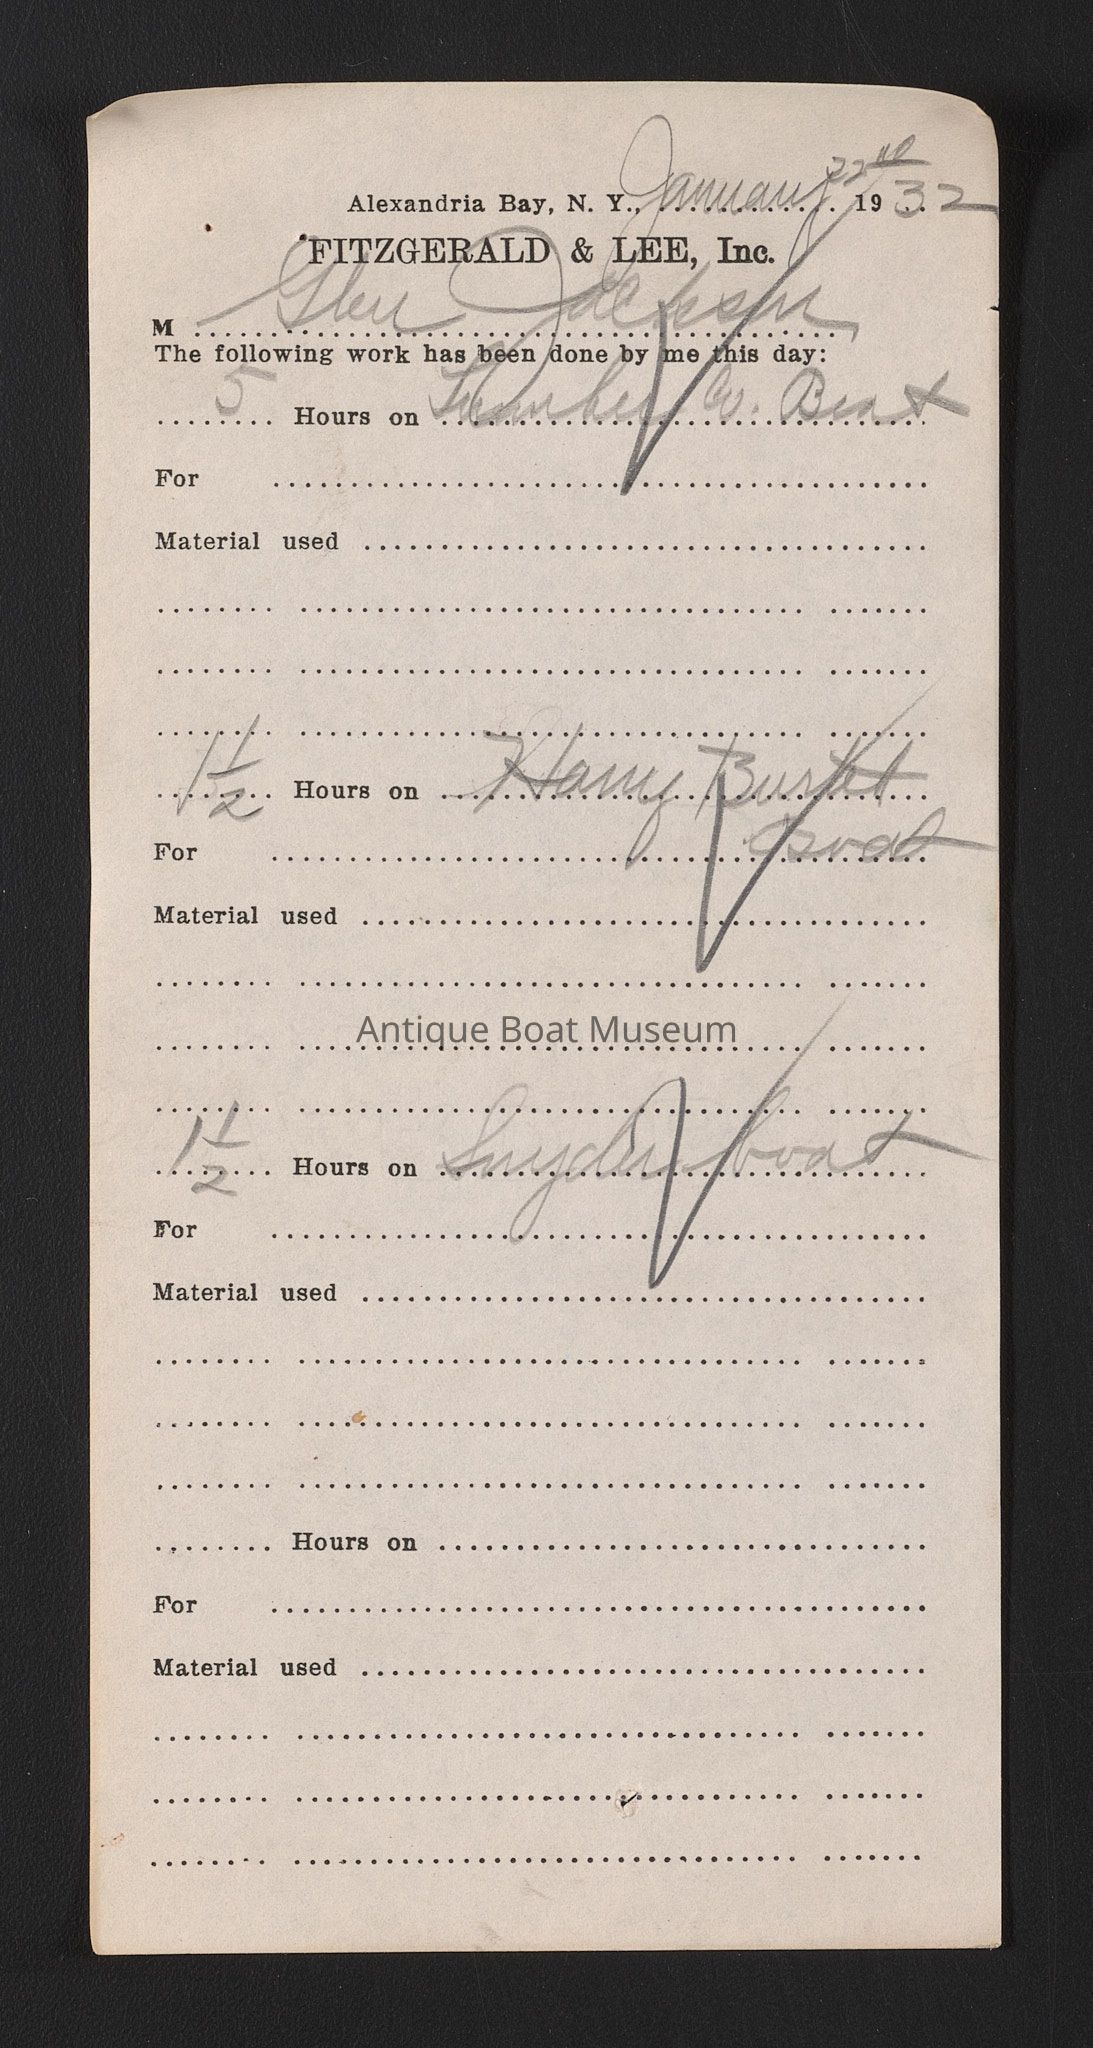 Alexandria Bay, N. Y., January 22nd 1932
FITZGERALD & LEE, Inc.
M Glen Jackson
The following work has been done by me this day:
5 Hours on Number W. Boat
For
Material used
1 1/2 Hours on Harry Burtet
boat
For
Material used
Antique Boat Museum
1 1/2 Hours on Snyder boat
For
Material used
Hours on
For
Material used